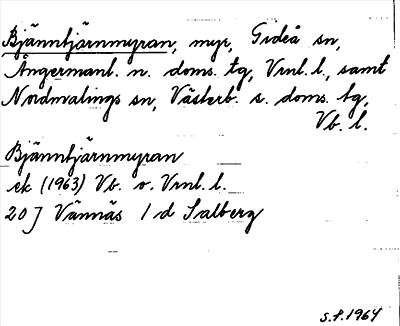 Bjänntjärnmyran, myr, Gideå sn,
Ångermanl. n. doms. tg, Vrnl. l., samt
Nordmalings sn, Västerb. s. doms. tg,
Vb. l.
Bjänntjärnmyran
ek (1963) Vb. o. Vrnl. l.
20 J Vännäs 1 d Salberg
S.P. 1964